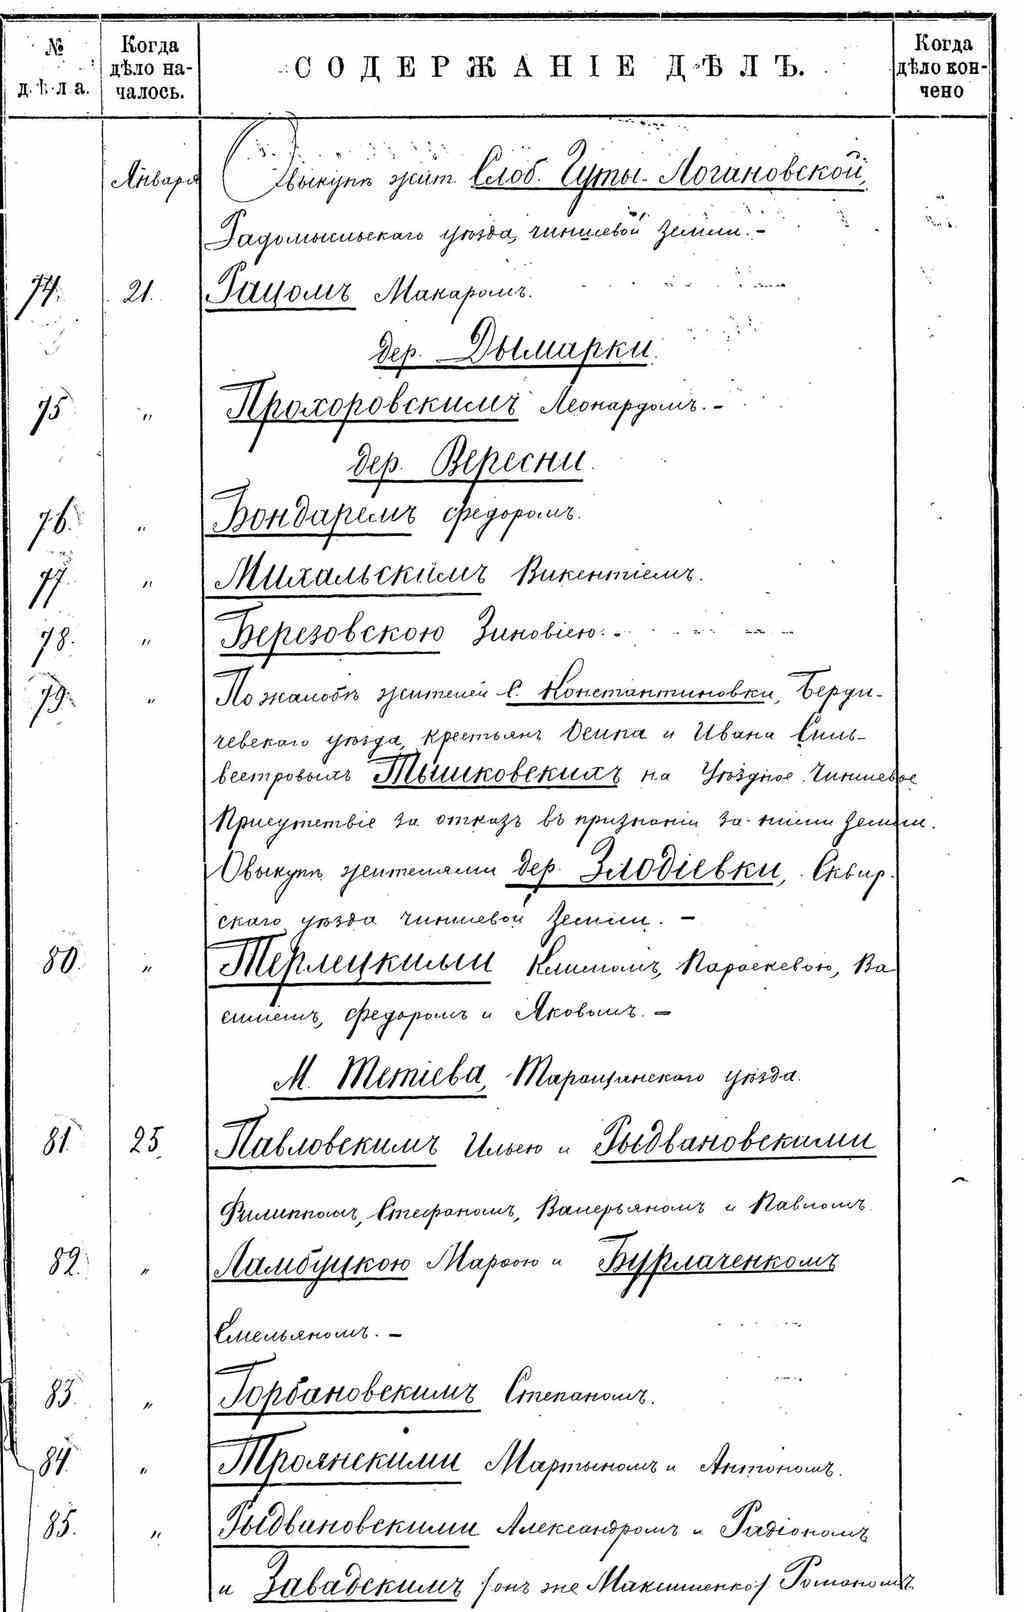 № дѣла.
Когда дѣло началось.
СОДЕРЖАНІЕ ДѢЛЪ.
Когда дѣло кончено
Января О выкупѣ жит. Слоб. Гуты-Логановской,
Радомысльскаго уѣзда, чиншевой земли.-
74. 21. Рацомъ Макаромъ.
дер. Дымарки.
75 " Прохоровскимъ Леонардомъ.-
дер. Вересни.
76. " Бондаремъ Федоромъ.
77. " Михальскимъ Викентіемъ.
78. " Березовскою Зиновіею.-
79. " По жалобѣ жителей С. Константиновки, Берди-
чевскаго уѣзда, крестьянъ Осипа и Ивана Силь-
вестровыхъ Тышковскихъ на Уѣздное Чиншевое
Присутствіе за отказъ въ признаніи за ними земли.
О выкупѣ жителями дер. Злодіевки, Сквир-
скаго уѣзда чиншевой земли.-
80. " Терлецкими Климомъ, Параскевою, Ва-
силіемъ, Федоромъ и Яковомъ.-
М. Тетіева, Таращанскаго уѣзда.
81. 25. Павловскимъ Ильею и Рыдвановскими
Филиппомъ, Стефаномъ, Валерьяномъ и Павломъ.
82. " Ламбуцкою Марѳою и Бурлаченкомъ
Емельяномъ.-
83. " Горбановскимъ Степаномъ.
84. " Троянскими Мартыномъ и Антономъ.
85. " Рыдвановскими Александромъ и Радіономъ
и Завадскимъ /онъ же Максименко/ Романомъ